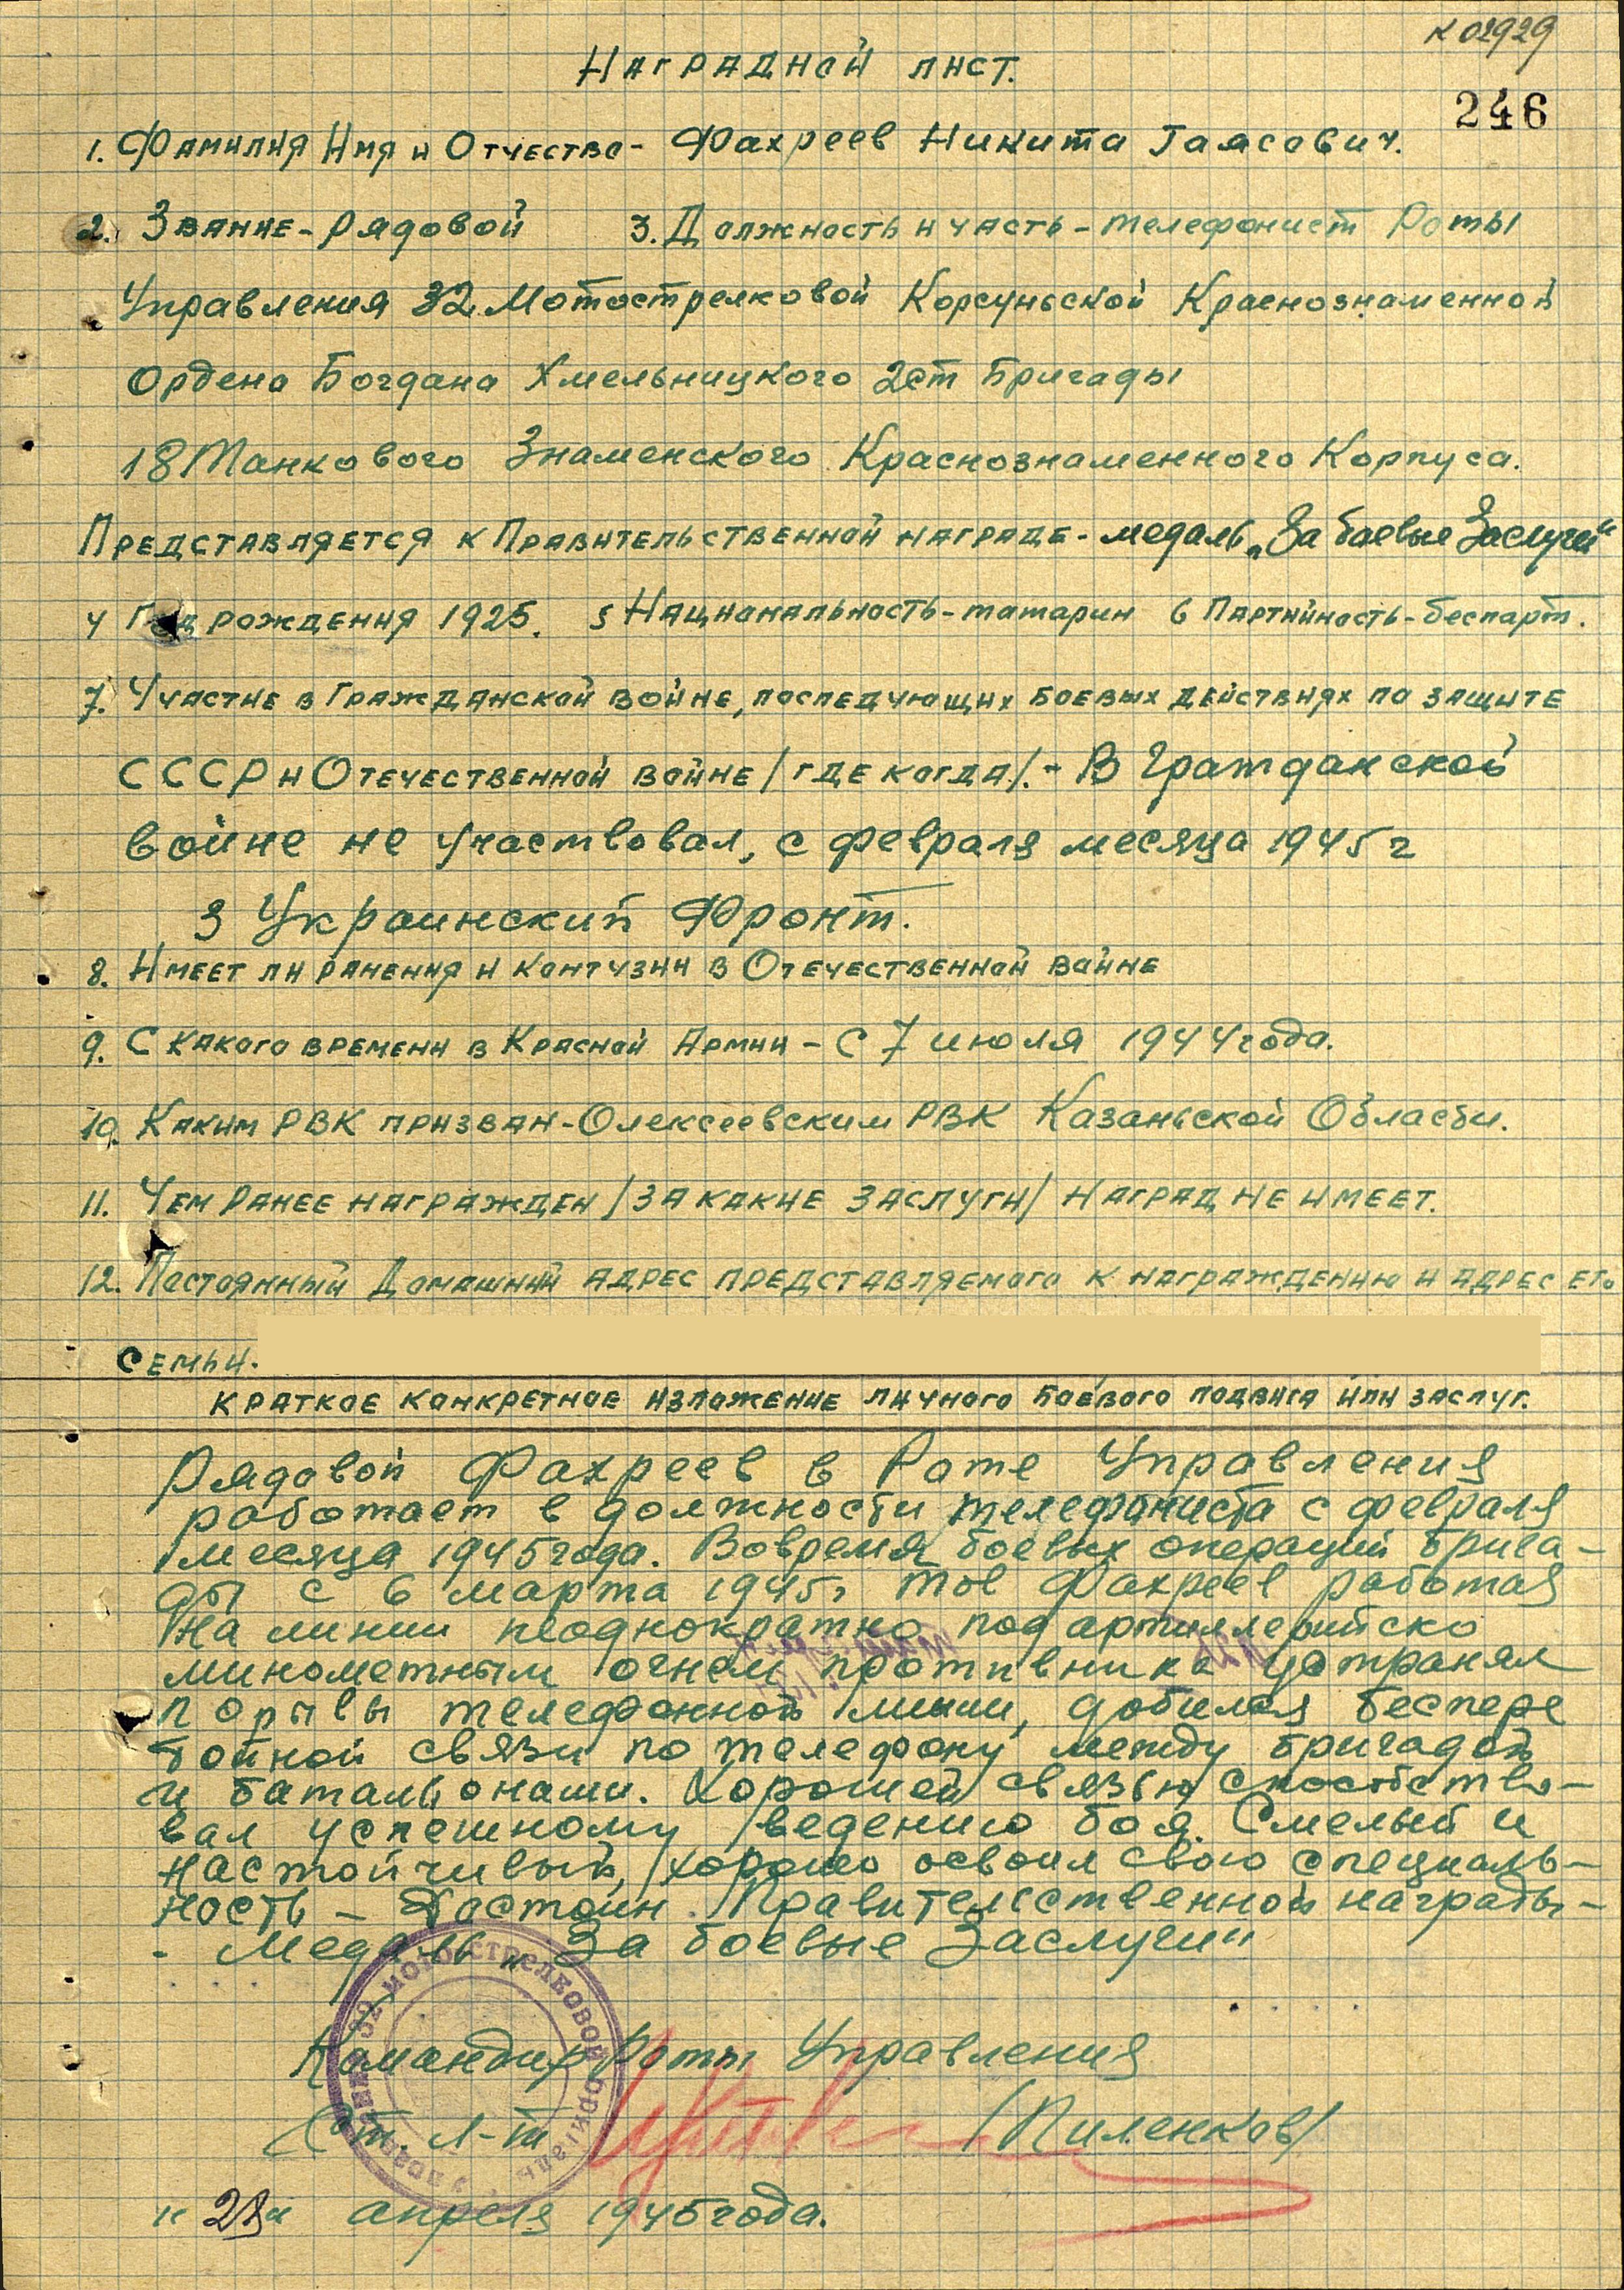 к 02929
Наградной лист.
246
1. Фамилия Имя и Отчество - Фахреев Никита Гаясович.
2. Звание - Рядовой 3. Должность и часть - телефонист Роты
Управления 32 Мотострелковой Корсуньской Краснознаменной
Ордена Богдана Хмельницкого 2 ст Бригады
18 Танкового Знаменского Краснознаменного Корпуса.
Представляется к Правительственной награде - медаль „За боевые Заслуги"
4 Год рождения 1925. 5 Национальность - татарин 6 Партийность - беспарт.
7. Участие в Гражданской войне, последующих боевых действиях по защите
СССР и Отечественной войне /где когда/. - В Гражданской
войне не участвовал, с февраля месяца 1945 г
3 Украинский Фронт.
8. Имеет ли ранения и контузии в Отечественной войне
9. С какого времени в Красной Армии - С 7 июля 1944 года.
10. Каким РВК призван - Олексеевским РВК Казаньской Области.
11. Чем ранее награжден /за какие заслуги/ Наград не имеет.
12. Постоянный Домашний адрес представляемого к награждению и адрес его
семьи.
Краткое конкретное изложение личного боевого подвига или заслуг.
Рядовой Фахреев в Роте Управления
работает в должности телефониста с февраля
месяца 1945 года. Вовремя боевых операций Брига-
ды с 6 марта 1945г тов Фахреев работая
На линии неоднократно под артиллерийско
минометным огнем противника устранял
порывы телефонной линии, добился беспере
бойной связи по телефону между бригадой
и батальонами. Хорошей связью способство-
вал успешному ведению боя. Смелый и
настойчивый, хорошо освоил свою специаль-
ность - Достоин Правительственной награды -
- Медаль „За боевые Заслуги"
32 мотострелковой бригады
Командир Роты Управления
Ст. л-т /Пиленков/
"28" апреля 1945 года.